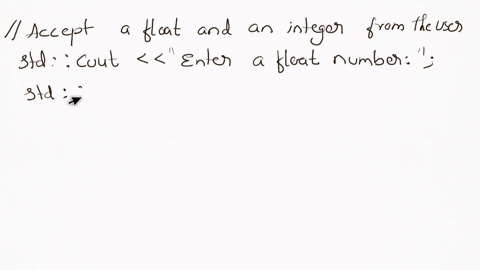 // Accept a float and an integer from the user
std::cout << "Enter a float number: ";
std::